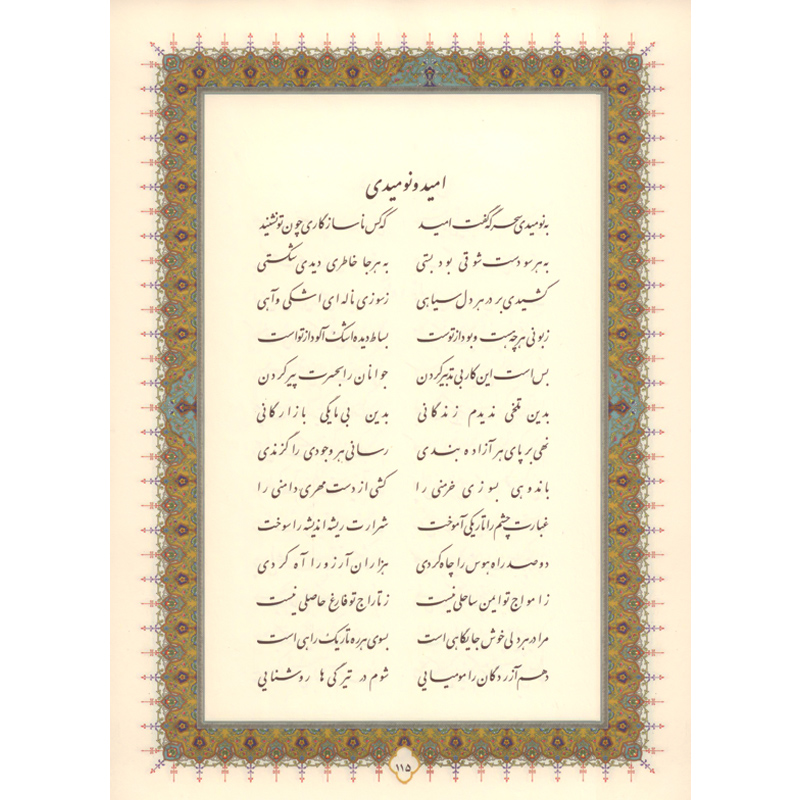 امید و نومیدی
به نومیدی سحرگه گفت امید که کس ناسازگاری چون تو نشنید
به هر سو دست شوقی بود بستی به هر جا خاطری دیدی شکستی
کشیدی بر در هر دل سپاهی ز سوزی ناله ای اشکی و آهی
زبونی هر چه هست و بود از توست بساط دیده اشک آلود از تو است
بس است این کار بی تدبیر کردن جوانان را بحسرت پیر کردن
بدین تلخی ندیدم زندگانی بدین بی مایگی بازارگانی
نهی بر پای هر آزاده بندی رسانی هر وجودی را گزندی
باندوهی بسوزی خرمنی را کشی از دست مهری دامنی را
غبارت چشم را تاریکی آموخت شرارت ریشه اندیشه را سوخت
دو صد راه هوس را چاه کردی هزاران آرزو را آه کردی
ز امواج تو ایمن ساحلی نیست ز تاراج تو فارغ حاصلی نیست
مرا در هر دلی خوش جایگاهی است بسوی هر ره تاریک راهی است
دهم آزردگان را مومیایی شوم در تیرگی ها روشنایی
۱۱۵